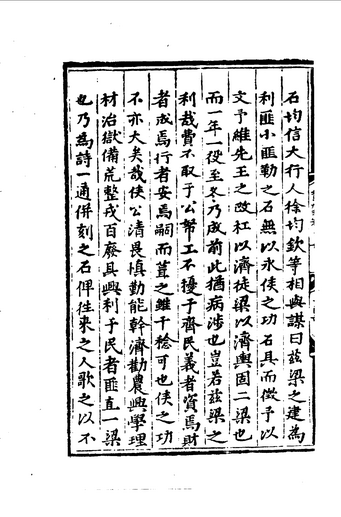 石均信大行人徐均欽等相與謀曰兹梁之建爲
利匪小匪勒之石無以永侯之功石具而徵予以
文予維先王之政杠以濟徒梁以濟輿固二梁也
而一年一役至冬乃成前此猶病涉也豈若兹梁之
利哉費不取于公帑工不擾于齊民義者資焉財
者成焉行者安焉嗣而葺之雖千稔可也侯之功
不亦大矣哉侯公清畏慎勤能幹濟勸農興學理
材治獄備荒整戎百廢具興利于民者匪直一梁
也乃爲詩一通併刻之石俾徃來之人歌之以不